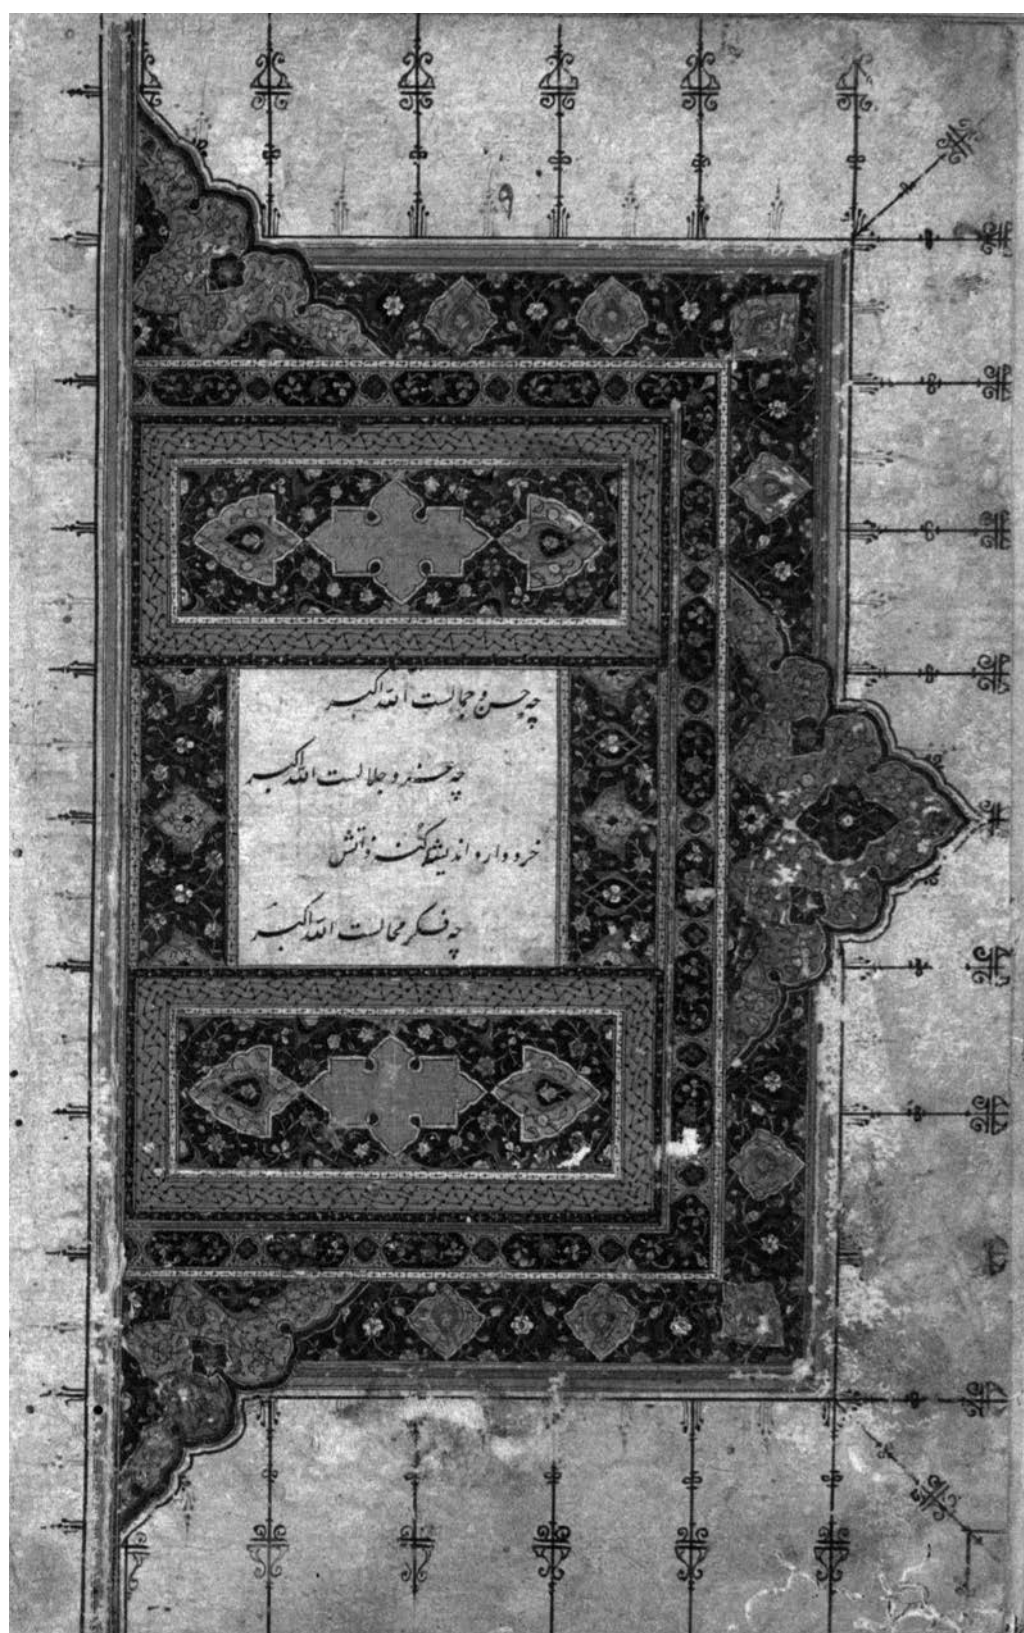 چه حسن و جمالست الله اکبر
چه عز و جلالست الله اکبر
خرد وارد اندیشهٔ کنه ذاتش
چه فکر محالست الله اکبر